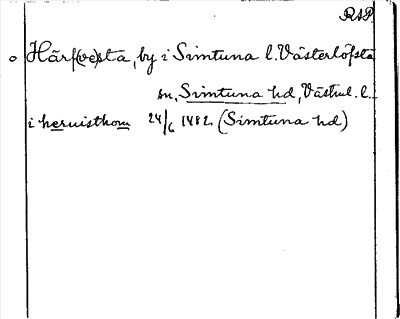 RAP
o Härf(ve)sta, by i Simtuna l. Västerlöfsta
sn, Simtuna hd, Västml. l.
i heruisthom 24/6 1482 (Simtuna hd)